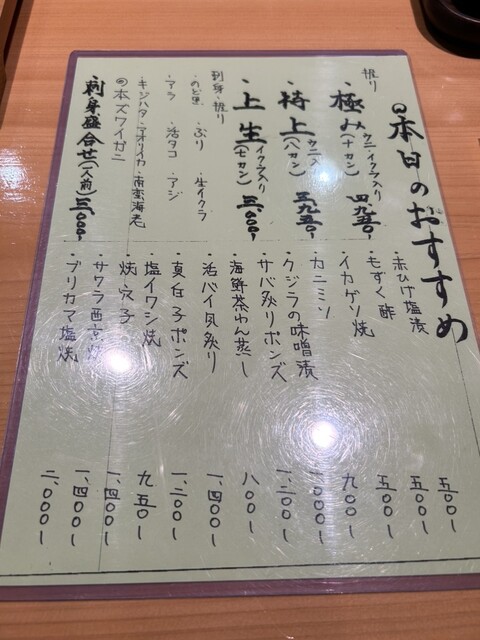 本日のおすすめ
握り
・極み(十カン) ウニ・イクラ入り 四、九五〇ー
・特上(八カン) ウニ入 三、九五〇ー
・上生(七カン) イクラ入り 三、〇〇〇ー
刺身・握り
・のど黒 ・ぶり ・生イクラ
・アラ ・活タコ ・アジ
・キジハタ・アオリイカ・南蛮海老
◎本ズワイガニ
・刺身盛合せ(一人前) 三、〇〇〇ー
・赤ひげ塩漬 五〇〇ー
・もずく酢 五〇〇ー
・イカゲソ焼 五〇〇ー
・カニミソ 九〇〇ー
・クジラの味噌漬 〇〇〇ー
・サバ炙りポンズ 一、二〇〇ー
・海鮮茶わん蒸し 八〇〇ー
・活バイ貝炙り 一、四〇〇ー
・真白子ポンズ 一、二〇〇ー
・塩イワシ焼 九五〇ー
・焼穴子 一、四〇〇ー
・サワラ西京焼 一、四〇〇ー
・ブリカマ塩焼 二、〇〇〇ー